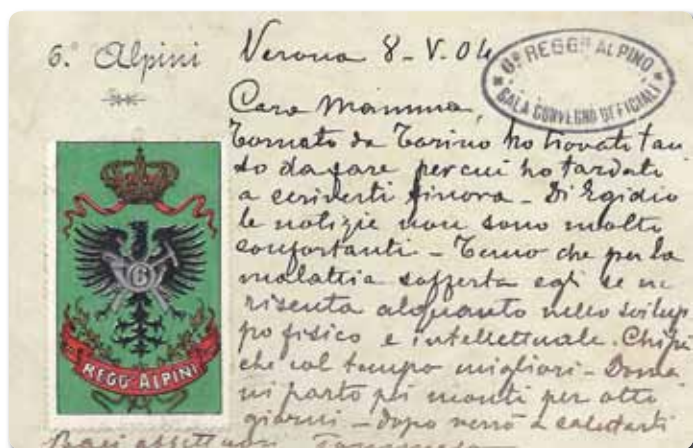 6.° Alpini
Verona 8-V.04
6° REGG° ALPINO
SALA CONVEGNO UFFICIALI
Cara Mamma,
Tornato da Torino ho trovati tan
to da fare per cui ho tardati
a scriverti finora - Di Egidio
le notizie non sono molto
confortanti - Temo che per la
malattia sofferta egli se ne
risenta alquanto nello svilup
po fisico e intellettuale. Chissà
che col tempo migliori - Doma
ni parto pei monti per otto
giorni - dopo verrò a salutarti
Baci affettuosi
6
REGG. ALPINI